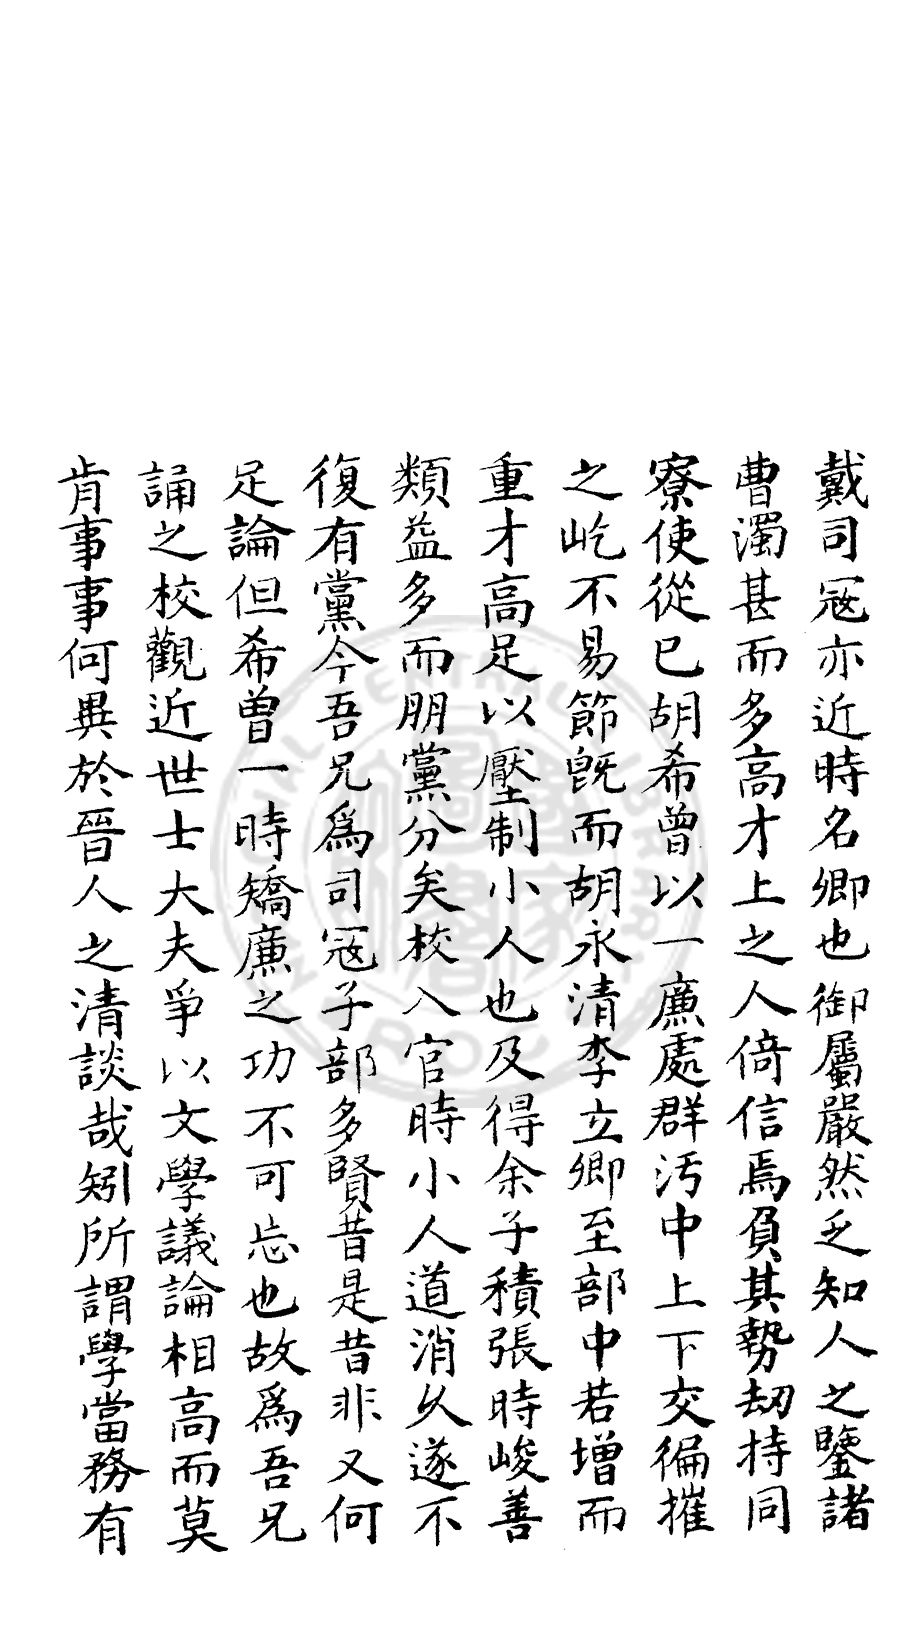 戴司冦亦近時名卿也御屬嚴然乏知人之鑒諸
曹濁甚而多高才上之人倚信焉負其勢刧持同
寮使從已胡希曾以一廉處群汚中上下交徧摧
之屹不易節旣而胡永清李立卿至部中若增而
重才高足以壓制小人也及得余子積張時峻善
類益多而朋黨分矣校入官時小人道消乆遂不
復有黨今吾兄爲司冦子部多賢昔是昔非又何
足論但希曾一時矯廉之功不可忘也故爲吾兄
誦之校觀近世士大夫爭以文學議論相高而莫
肯事事何異於晉人之清談哉矧所謂學當務有